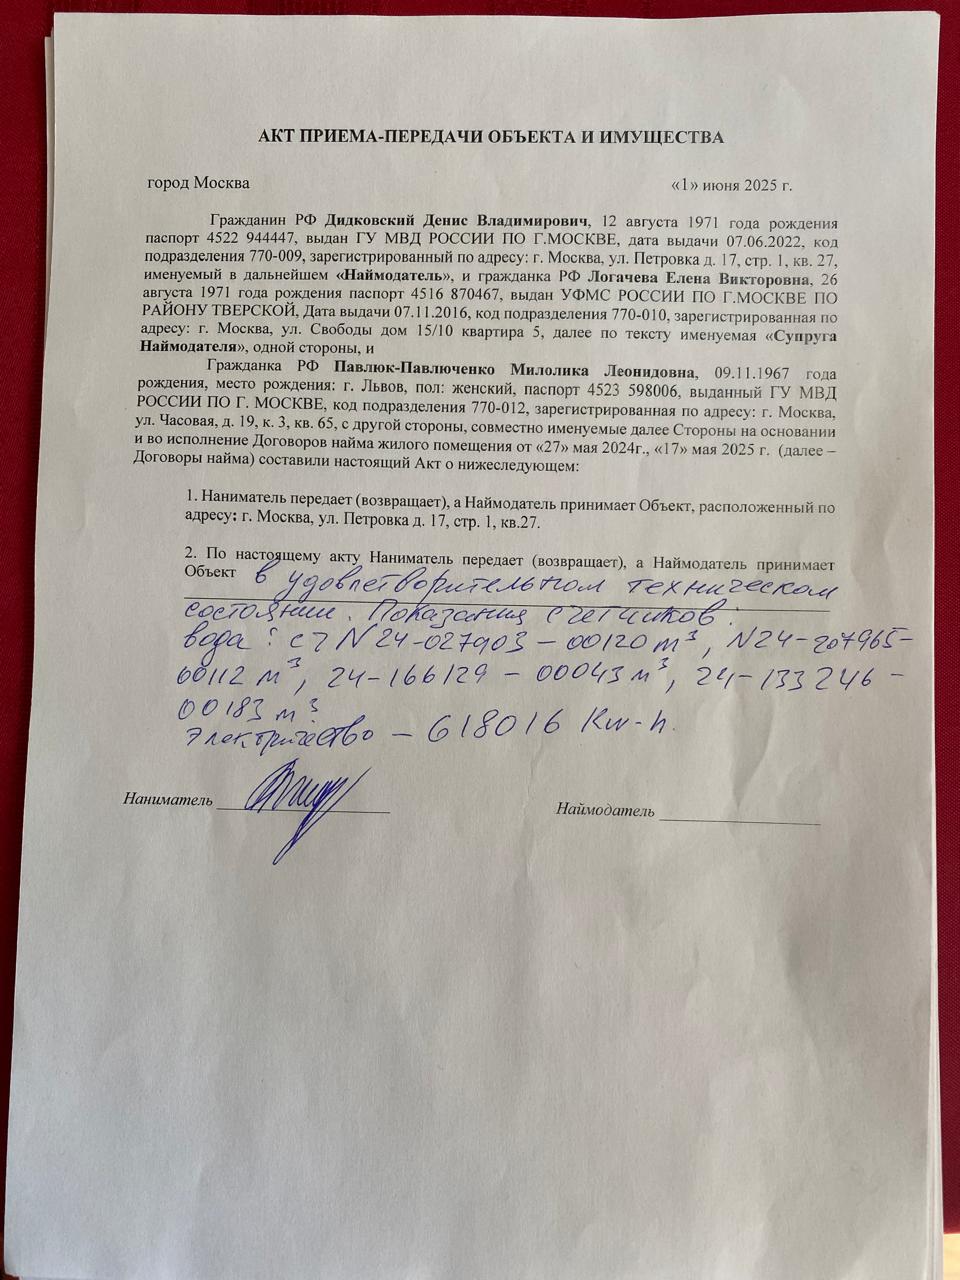 АКТ ПРИЕМА-ПЕРЕДАЧИ ОБЪЕКТА И ИМУЩЕСТВА
город Москва «1» июня 2025 г.
Гражданин РФ Дидковский Денис Владимирович, 12 августа 1971 года рождения
паспорт 4522 944447, выдан ГУ МВД РОССИИ ПО Г.МОСКВЕ, дата выдачи 07.06.2022, код
подразделения 770-009, зарегистрированный по адресу: г. Москва, ул. Петровка д. 17, стр. 1, кв. 27,
именуемый в дальнейшем «Наймодатель», и гражданка РФ Логачева Елена Викторовна, 26
августа 1971 года рождения паспорт 4516 870467, выдан УФМС РОССИИ ПО Г.МОСКВЕ ПО
РАЙОНУ ТВЕРСКОЙ, Дата выдачи 07.11.2016, код подразделения 770-010, зарегистрированная по
адресу: г. Москва, ул. Свободы дом 15/10 квартира 5, далее по тексту именуемая «Супруга
Наймодателя», одной стороны, и
Гражданка РФ Павлюк-Павлюченко Милолика Леонидовна, 09.11.1967 года
рождения, место рождения: г. Львов, пол: женский, паспорт 4523 598006, выданный ГУ МВД
РОССИИ ПО Г. МОСКВЕ, код подразделения 770-012, зарегистрированная по адресу: г. Москва,
ул. Часовая, д. 19, к. 3, кв. 65, с другой стороны, совместно именуемые далее Стороны на основании
и во исполнение Договоров найма жилого помещения от «27» мая 2024г., «17» мая 2025 г. (далее –
Договоры найма) составили настоящий Акт о нижеследующем:
1. Наниматель передает (возвращает), а Наймодатель принимает Объект, расположенный по
адресу: г. Москва, ул. Петровка д. 17, стр. 1, кв.27.
2. По настоящему акту Наниматель передает (возвращает), а Наймодатель принимает
Объект в удовлетворительном техническом
состоянии. Показания счетчиков:
вода: сч N24-027903 – 00120 м³, N24-207965-
00112 м³, 24-166129 – 00043 м³, 24-133246 –
00183 м³
Электричество – 618016 Kw-h.
Наниматель Наймодатель